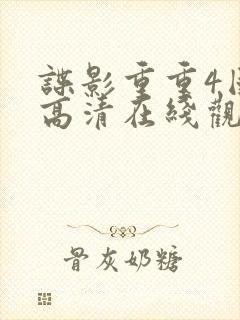 諜影重重4
高清在綫觀
骨灰奶糖